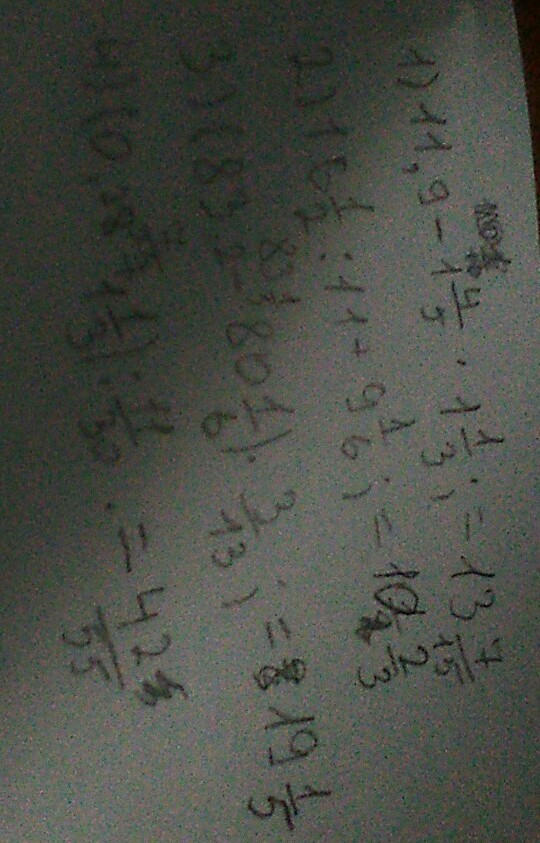 1) 11,9 - 1 4/5 · 1 1/3; = 13 7/15
2) 16 1/2 : 11 + 9 1/6; = 10 2/3
3) (83,2 - 80 1/6) · 3/13; = 19 1/5
1 1/3) : 11/30 . = 42/55